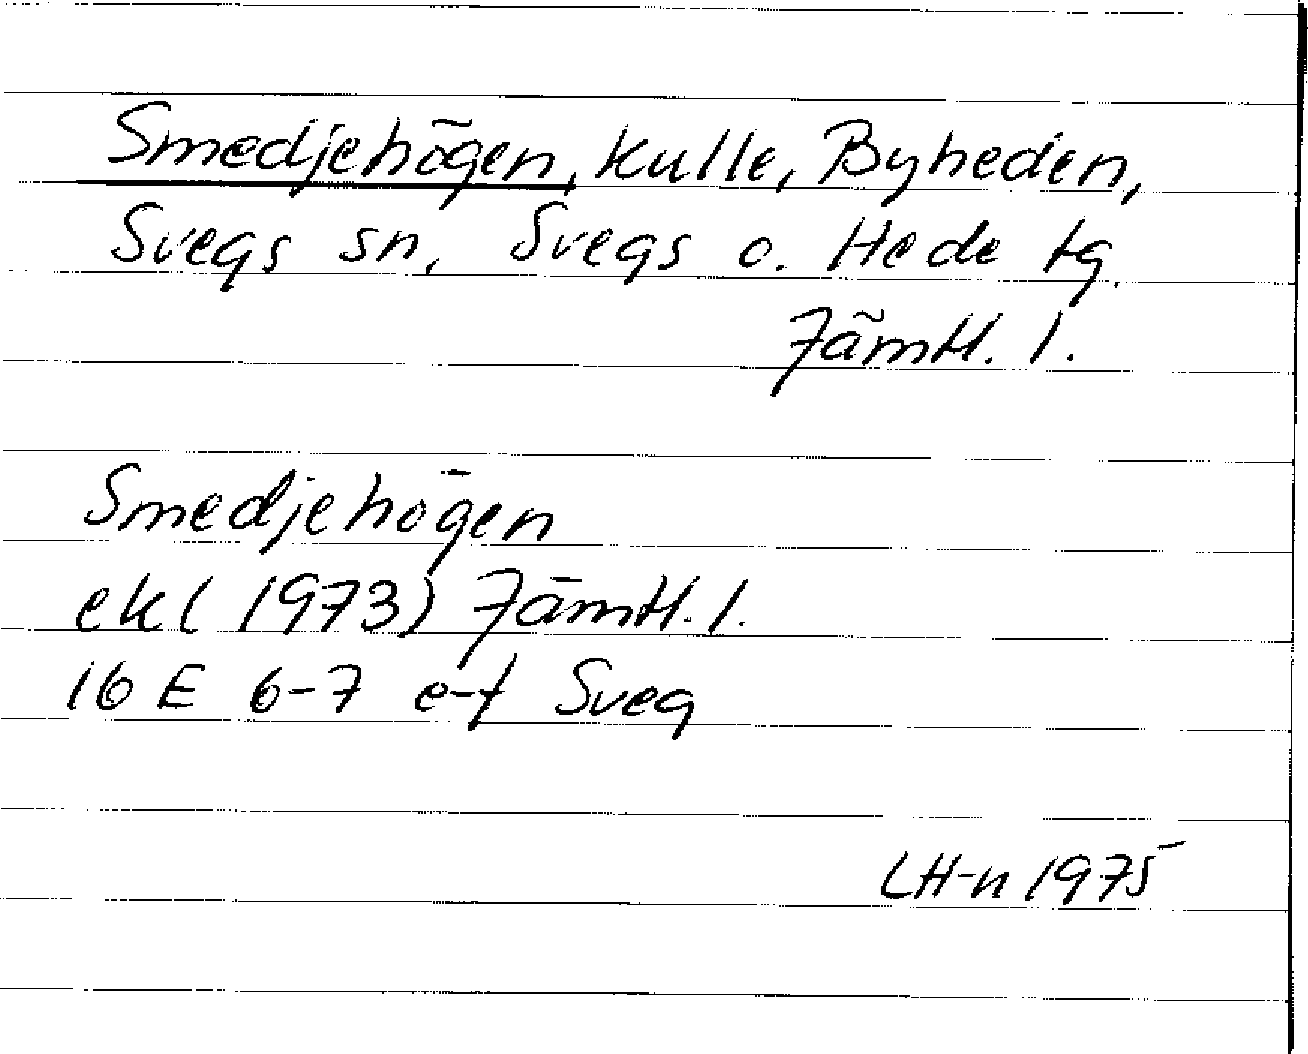 Smedjehögen, kulle, Byheden,
Svegs sn, Svegs o. Hede tg.
Jämtl. l.
Smedjehögen
ekl (1973) Jämtl. l.
16 E 6-7 e-f Sveg
LH-n 1975